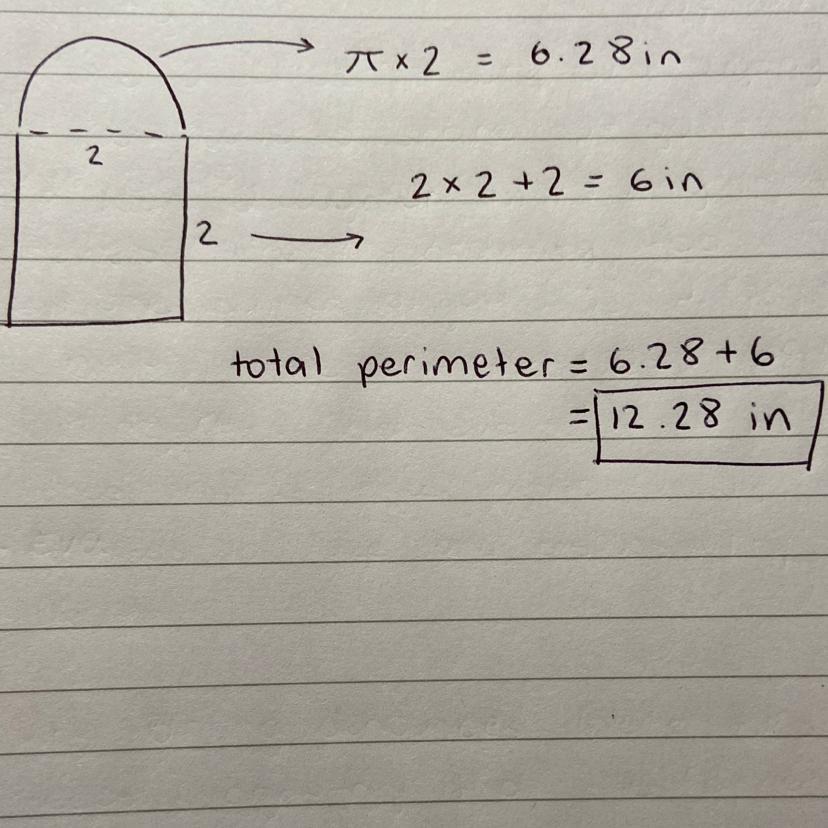 π × 2 = 6.28in
2
2 × 2 + 2 = 6 in
2
total perimeter = 6.28 + 6
= 12.28 in